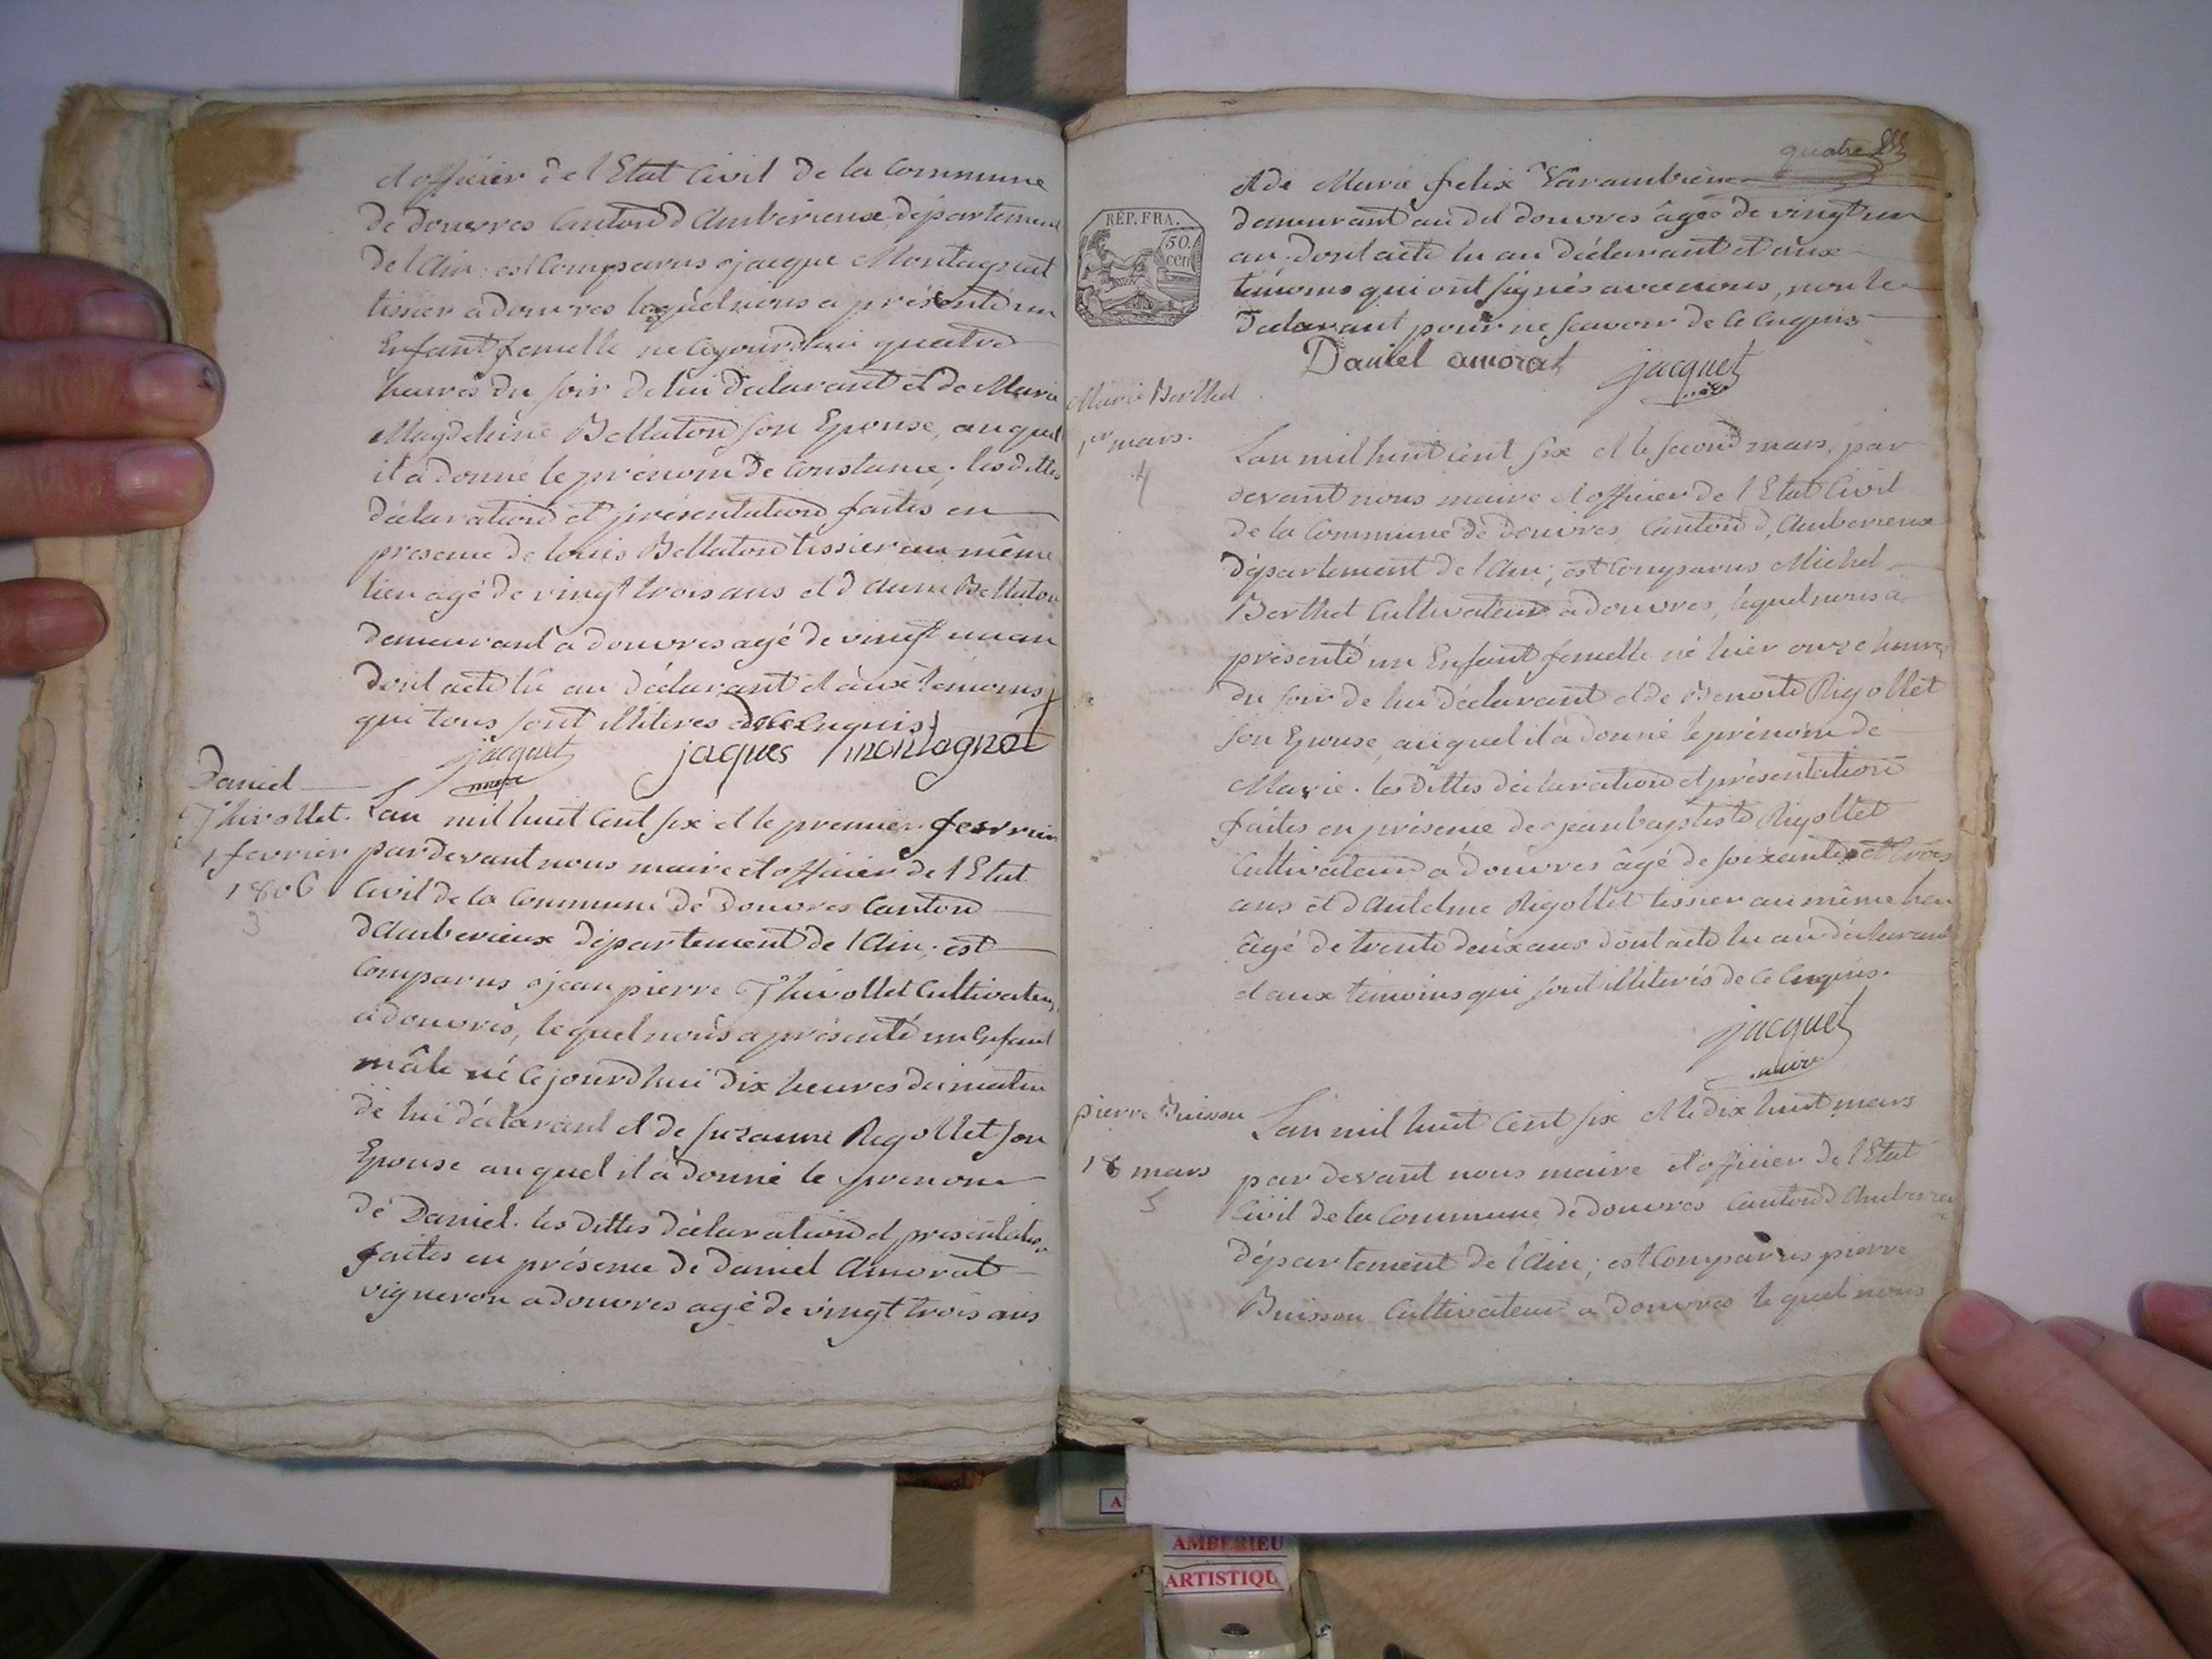 et officier de l'Etat Civil de la Commune
de douvres Canton d'Amberieux, département
de l'Ain; est Comparus jacque Montagnat
tissier a douvres lequel nous a présenté un
Enfant femelle né cejourdhui quatre
heures du soir de lui déclarant et de Marie
Magdeleine Bellaton son Epouse, auquel
il a donné le prénom de Constance; les dittes
déclaration et présentation faites en
presence de louis Bellaton tissier au même
lieu agé de vingt trois ans et d'anne Bellaton
demeurant a douvres agé de vingt un an
dont acte lu au déclarant et aux témoins
qui tous sont illiteres de ce enquis
jacquet jaques montagnat
maire
Daniel
Thivollet.
1 fevrier
1806
3
Lan mil huit Cent six et le premier fevrier
pardevant nous maire et officier de l'Etat
Civil de la Commune de Douvres Canton
d'Amberieux département de l'Ain; est
Comparus jean pierre Thivollet Cultivateur
a douvres, lequel nous a présenté un Enfant
mâle né cejourdhui dix heures du matin
de lui déclarant et de suzanne Rigollet son
Epouse auquel il a donné le prenom
de Daniel. les dittes déclaration et presentation
faites en présence de Daniel Amorat
vigneron a douvres agé de vingt trois ans
quatre
RÉP. FRA.
50.
cen
et de Marie felix Varambière
demeurant au dit douvres âgée de vingt un
an. dont acte lu au déclarant et aux
témoins qui ont signés avec nous, non le
declarant pour ne scavoir de ce enquis
Daniel amorat jacquet
Marie Berthet
1er mars.
4
Lan mil huit cent six et le second mars, par
devant nous maire et officier de l'Etat Civil
de la Commune de douvres, Canton d'Amberieux
département de l'Ain; est Comparus Michel
Berthet Cultivateur a douvres, lequel nous a
présenté un Enfant femelle né hier onze heures
du soir de lui déclarant et de Benoite Rigollet
son Epouse, auquel il a donné le prénom de
Marie. les dittes déclaration et présentation
faites en présence de jean baptiste Rigollet
Cultivateur a douvres âgé de soixante et trois
ans et d'Antelme Rigollet tissier au même lieu
âgé de trente deux ans dont acte lu au déclarant
et aux témoins qui sont illiterés de ce enquis.
jacquet
maire
pierre Buisson
18 mars
5
Lan mil huit Cent six et le dix huit mars
par devant nous maire et officier de l'Etat
Civil de la Commune de douvres Canton d'Amberieux
département de l'Ain; est Comparus pierre
Buisson Cultivateur a douvres lequel nous
A
AMBERIEU
ARTISTIQU